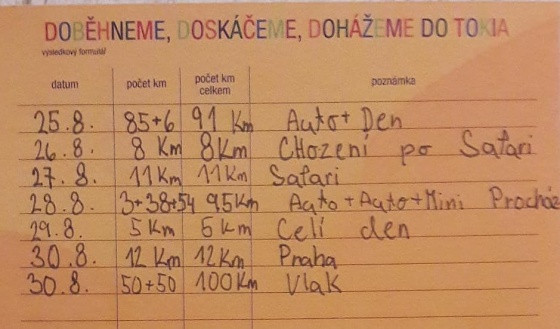 DOBĚHNEME, DOSKÁČEME, DOHÁŽEME DO TOKIA
výsledkový formulář
datum počet km počet km celkem poznámka
25.8. 85+6 91 Km Auto+ Den
26.8. 8 Km 8Km CHození po Safari
27.8. 11Km 11Km Safari
28.8. 3+38+54 95Km Auto+Auto+Mini Prochaz
29.8. 5Km 5Km Celí den
30.8. 12Km 12Km Praha
30.8. 50+50 100Km Vlak